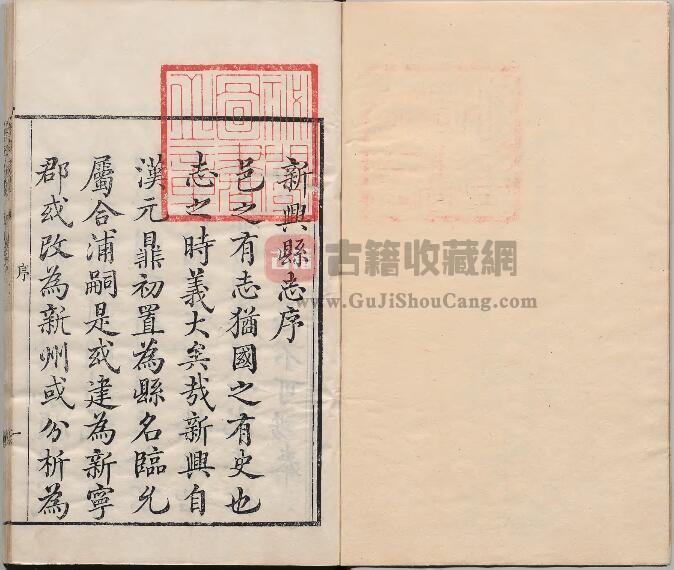 新興縣志序
邑之有志猶國之有史也
志之時義大矣哉新興自
漢元鼎初置為縣名臨允
屬合浦嗣是或建為新寧
郡或改為新州或分析為
序
一
秘閣
圖書
之章
古籍收藏網
www.GuJiShouCang.com